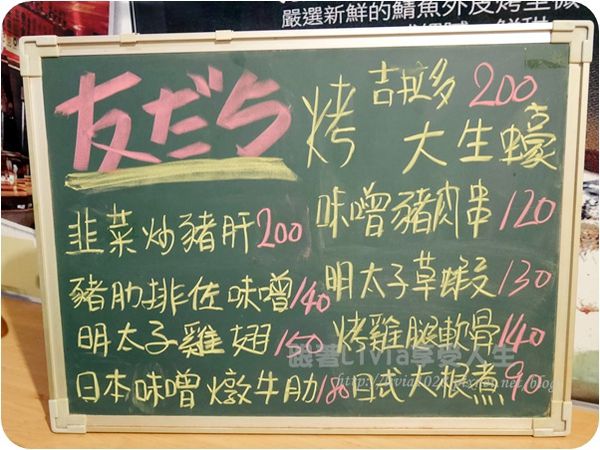 嚴選新鮮的鯖魚外皮烤至微
友だち
烤 吉拉多 200
大生蠔
韭菜炒豬肝 200
豬肋排佐味噌 140
明太子雞翅 150
日本味噌燉牛肋 180
味噌豬肉串 120
明太子草蝦 130
烤雞腿軟骨 140
日式大根煮 90
跟著Livia享受人生